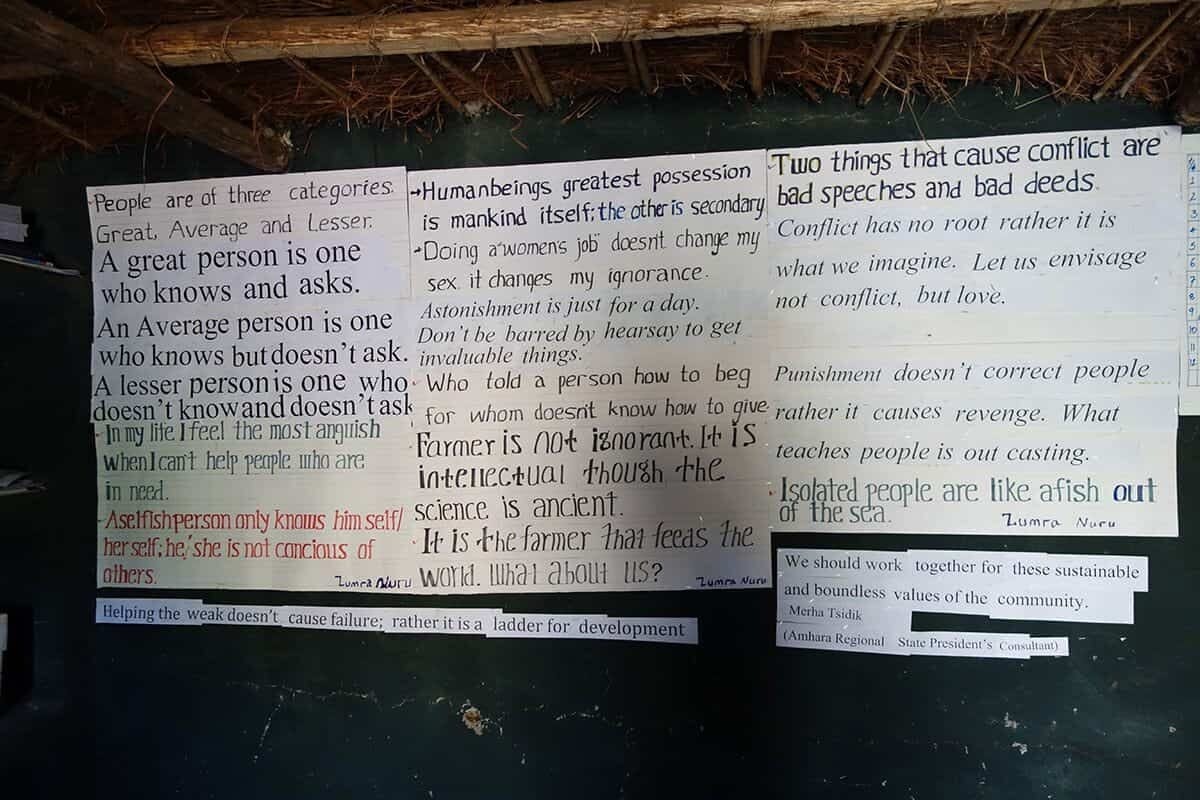 People are of three categories.
Great, Average and Lesser.
A great person is one
who knows and asks.
An Average person is one
who knows but doesn't ask.
A lesser person is one who
doesn't know and doesn't ask
In my life I feel the most anguish
when I can't help people who are
in need.
A selfish person only knows him self/
her self; he/she is not concious of
others.
Zumra Nuru
→Humanbeings greatest possession
is mankind itself; the other is secondary
Doing a "women's job" doesn't change my
sex. it changes my ignorance.
Astonishment is just for a day.
Don't be barred by hearsay to get
invaluable things.
Who told a person how to beg
for whom doesn't know how to give
Farmer is not ignorant. It is
intellectual though the
science is ancient.
It is the farmer that feeds the
world. What about us?
Zumra Nuru
Two things that cause conflict are
bad speeches and bad deeds.
Conflict has no root rather it is
what we imagine. Let us envisage
not conflict, but love.
Punishment doesn't correct people
rather it causes revenge. What
teaches people is out casting.
Isolated people are like a fish out
of the sea.
Zumra Nuru
Helping the weak doesn't cause failure; rather it is a ladder for development
We should work together for these sustainable
and boundless values of the community.
Merha Tsidik
(Amhara Regional State President's Consultant)
6
7
8
9
10
11
12